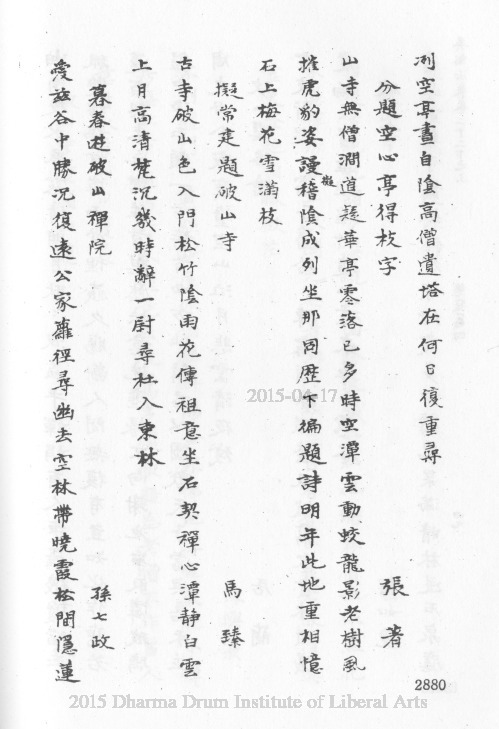 冽空亭晝自陰高僧遺塔在何日復重尋
分題空心亭得枝字 張著
山寺無僧澗道疑華亭零落已多時空潭雲動蛟龍影老樹風
摧虎豹姿謾稽陰成列坐那同歷下徧題詩明年此地重相憶
擬
石上梅花雪滿枝
擬常建題破山寺 馬臻
古寺破山色入門松竹陰雨花傳祖意坐石契禪心潭靜白雲
上月高清梵沉幾時辭一尉尋社入東林
暮春遊破山禪院 孫七政
愛茲谷中勝况復遠公家蘿徑尋幽去空林帶曉霞松間隱蓮
2880
2015-04-17
2015 Dharma Drum Institute of Liberal Arts